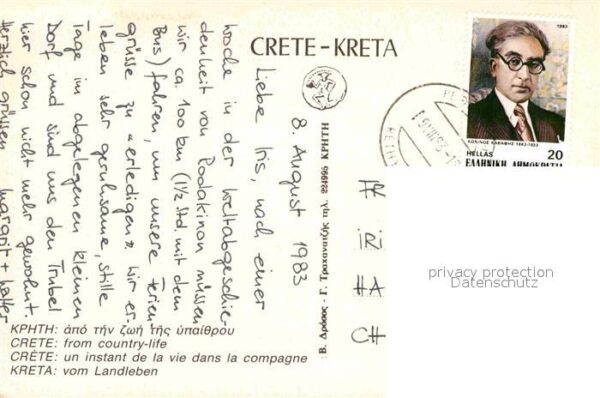 CRETE-KRETA
8. August 1983
Liebe Iris, nach einer
Woche in der Weltabgeschie-
denheit von Rodakinon müssen
wir ca. 100 km (1½ Std mit dem
Bus) fahren, um unsere Ferien
grüsse zu "erledigen". Wir er-
leben sehr geruhsame, stille
Tage in abgelegenen kleinen
Dorf und sind uns den Trubel
hier schon nicht mehr gewohnt.
Herzlich grüssen Margrit + Walter
ΚΡΗΤΗ: ἀπό τήν ζωή τῆς ὑπαίθρου
CRETE: from country-life
CRÈTE: un instant de la vie dans la compagne
KRETA: vom Landleben
Β. Δρόσος - Γ. Τραχανατζῆς τηλ. 224695 ΚΡΗΤΗ
1983
ΚΩΝ/ΝΟΣ ΚΑΒΑΦΗΣ 1863-1933
HELLAS 20
ΕΛΛΗΝΙΚΗ ΔΗΜΟΚΡΑΤΙΑ
CH
privacy protection
Datenschutz